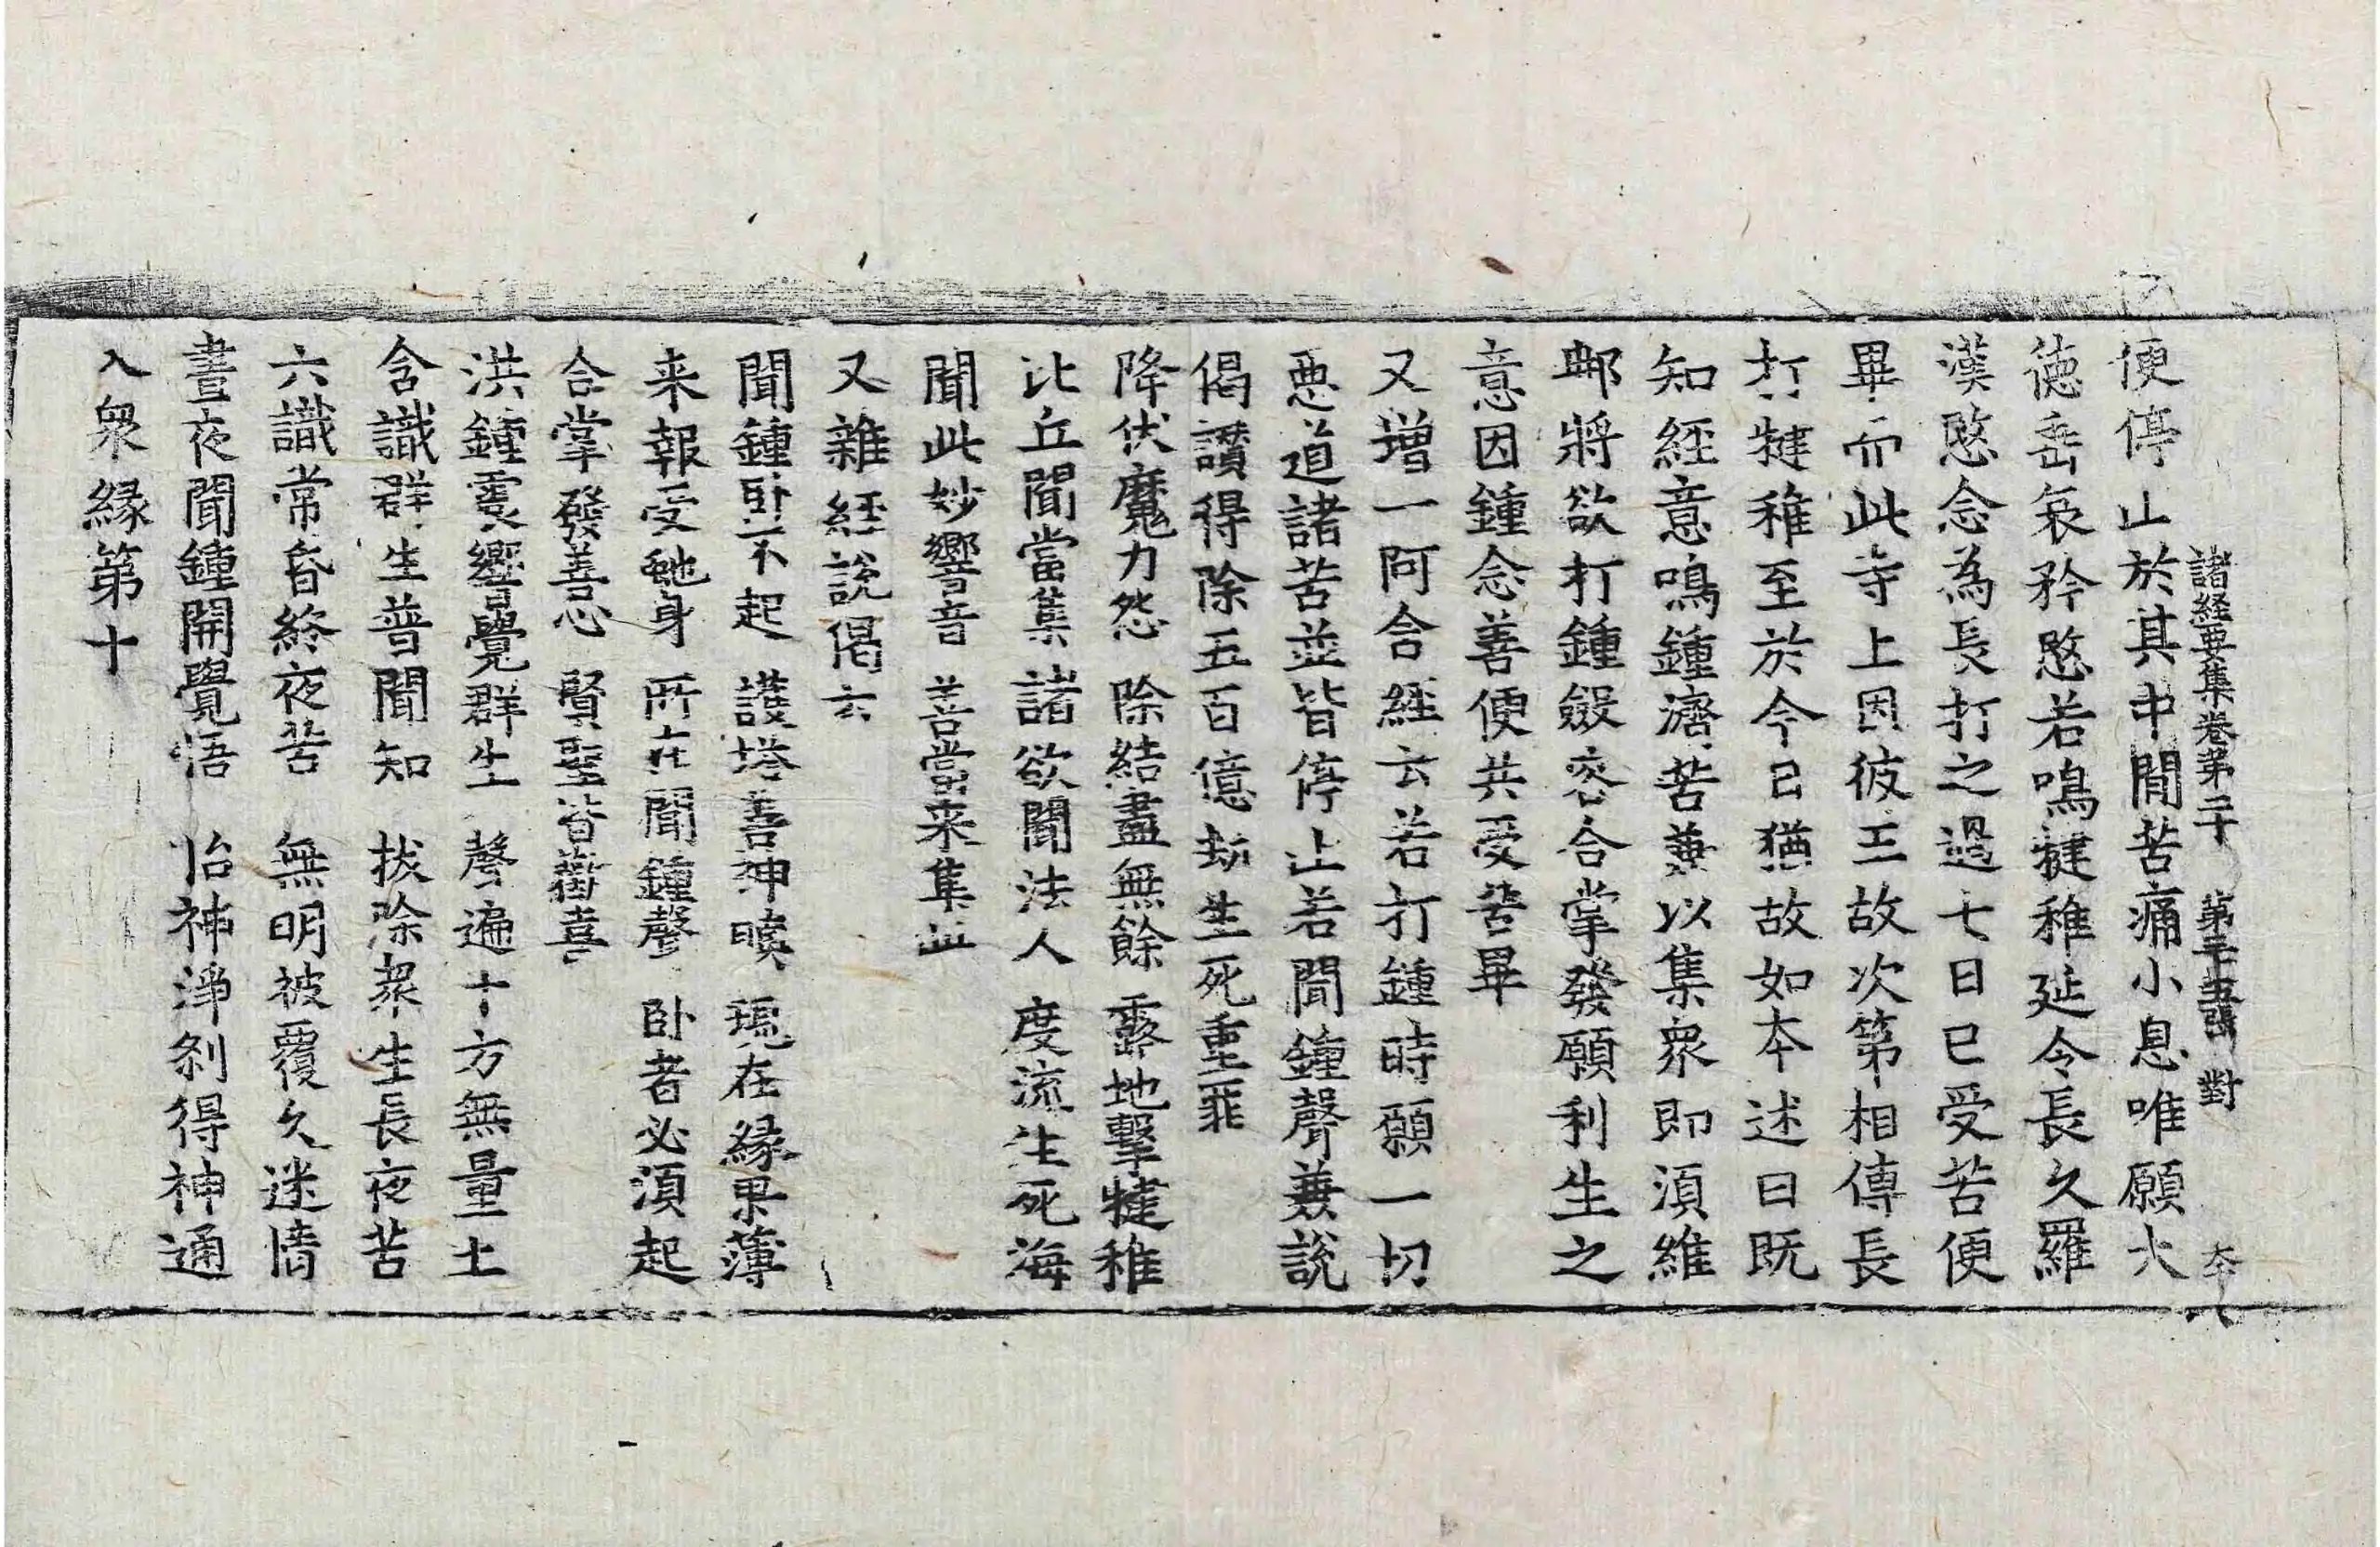 諸経要集卷第二十 第三十五張 對
便停止於其中間苦痛小息唯願大
徳垂哀矜愍若鳴犍稚延令長久羅
漢愍念為長打之過七日已受苦便
畢而此寺上因彼王故次第相傳長
打犍稚至於今日猶故如本述曰既
知経意鳴鍾濟苦兼以集衆即湏維
那將欲打鍾斂容合掌發願利生之
意因鍾念善便共受苦畢
又增一阿含経云若打鍾時願一切
悪道諸苦並皆停止若聞鍾聲兼説
偈讃得除五百億劫生死重罪
降伏魔力怨 除結盡無餘 露地擊犍稚
比丘聞當集 諸欲聞法人 度流生死海
聞此妙響音 善當来集此
又雜経說偈云
聞鍾卧不起 護塔善神瞋 現在緣果薄
来報受虵身 所在聞鍾聲 卧者必湏起
合掌發善心 賢聖皆歡喜
洪鍾震響覺群生 聲遍十方無量土
含識群生普聞知 拔除衆生長夜苦
六識常昏終夜苦 無明被覆久迷情
晝夜聞鍾開覺悟 怡神淨刹得神通
入衆緣第十